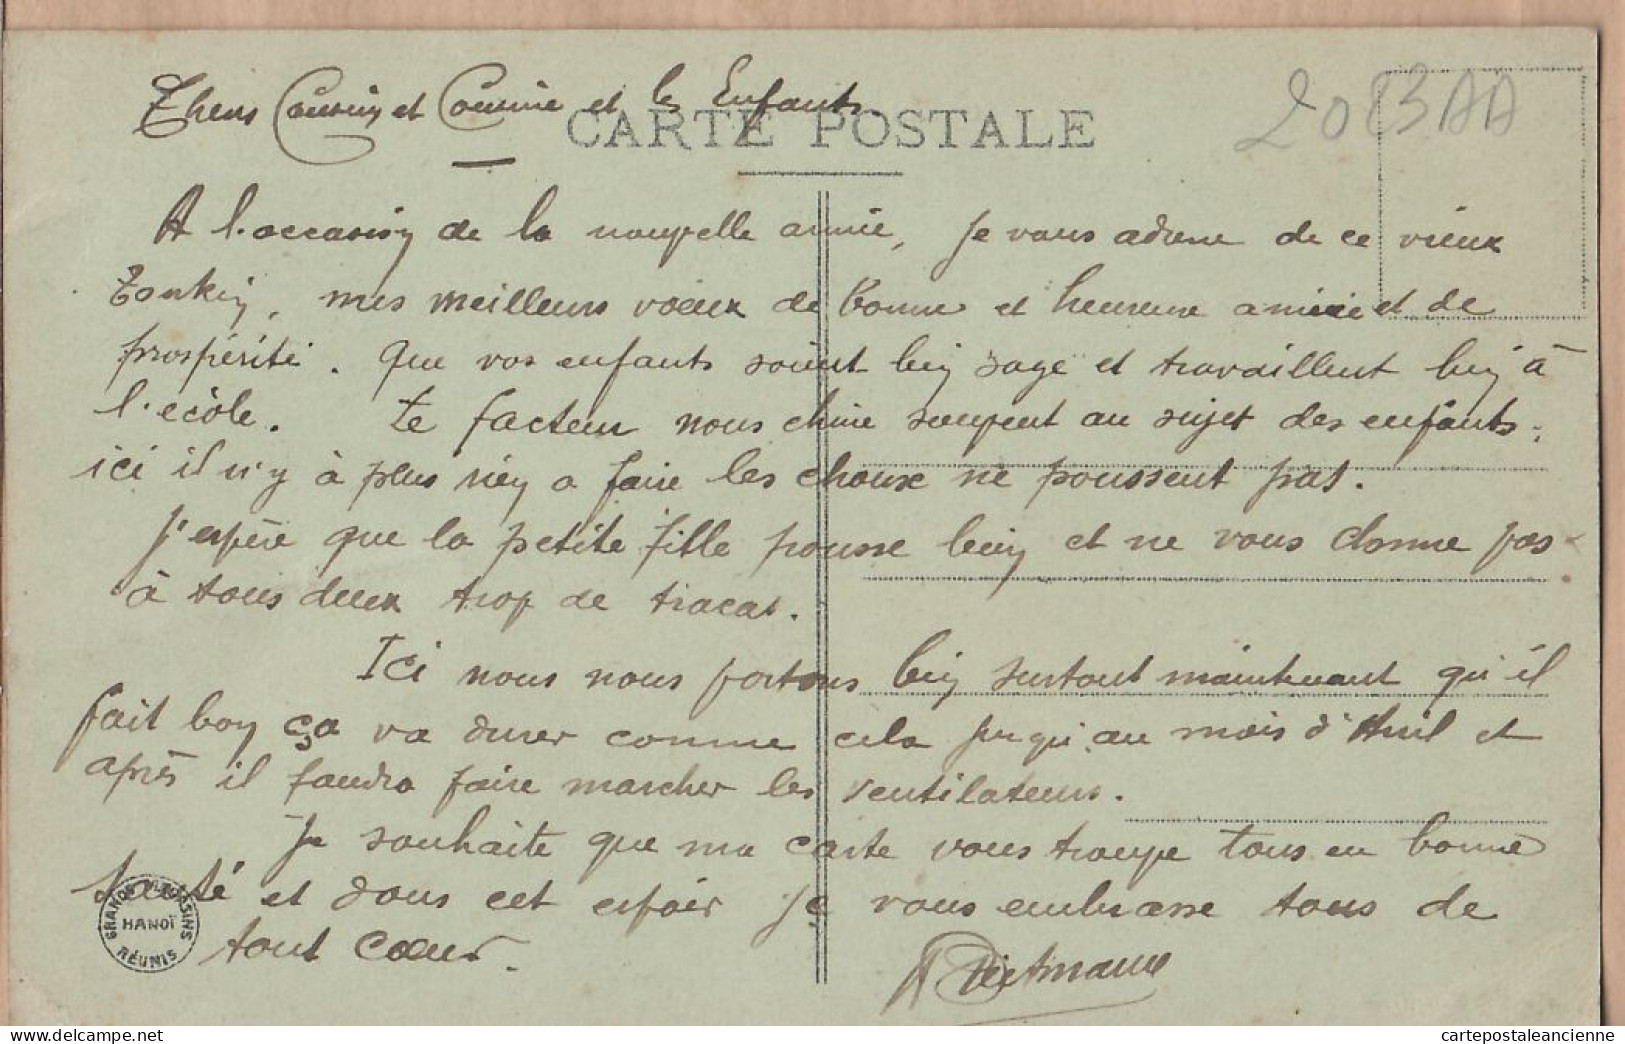 Chers Cousin et Cousine et les Enfants
CARTE POSTALE
2083AA
A l'occasion de la nouvelle année, je vous adresse de ce vieux
Tonkin, mes meilleurs voeux de bonne et heureuse année et de
prospérité. Que vos enfants soient bien sage et travaillent bien à
l'ecòle. Le facteur nous chine souvent au sujet des enfants,
ici il n'y à plus rien a faire les choux ne poussent pas.
J'espère que la petite fille pousse bien et ne vous donne pas
à tous deux trop de tracas.
Ici nous nous portons bien surtout maintenant qu'il
fait bon ça va durer comme cela jusqu'au mois d'Avril et
après il faudra faire marcher les ventilateurs.
Je souhaite que ma carte vous trouve tous en bonne
santé et dans cet espoir je vous embrasse tous de
tout coeur.
GRANDS MAGASINS
HANOÏ
RÉUNIS
delcampe.net
cartepostaleancienne